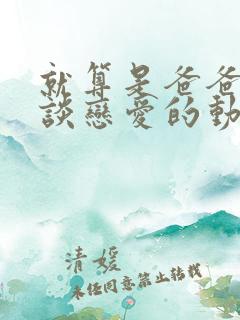 就算是爸爸
談戀愛的動
清媛
未經同意禁止轉載